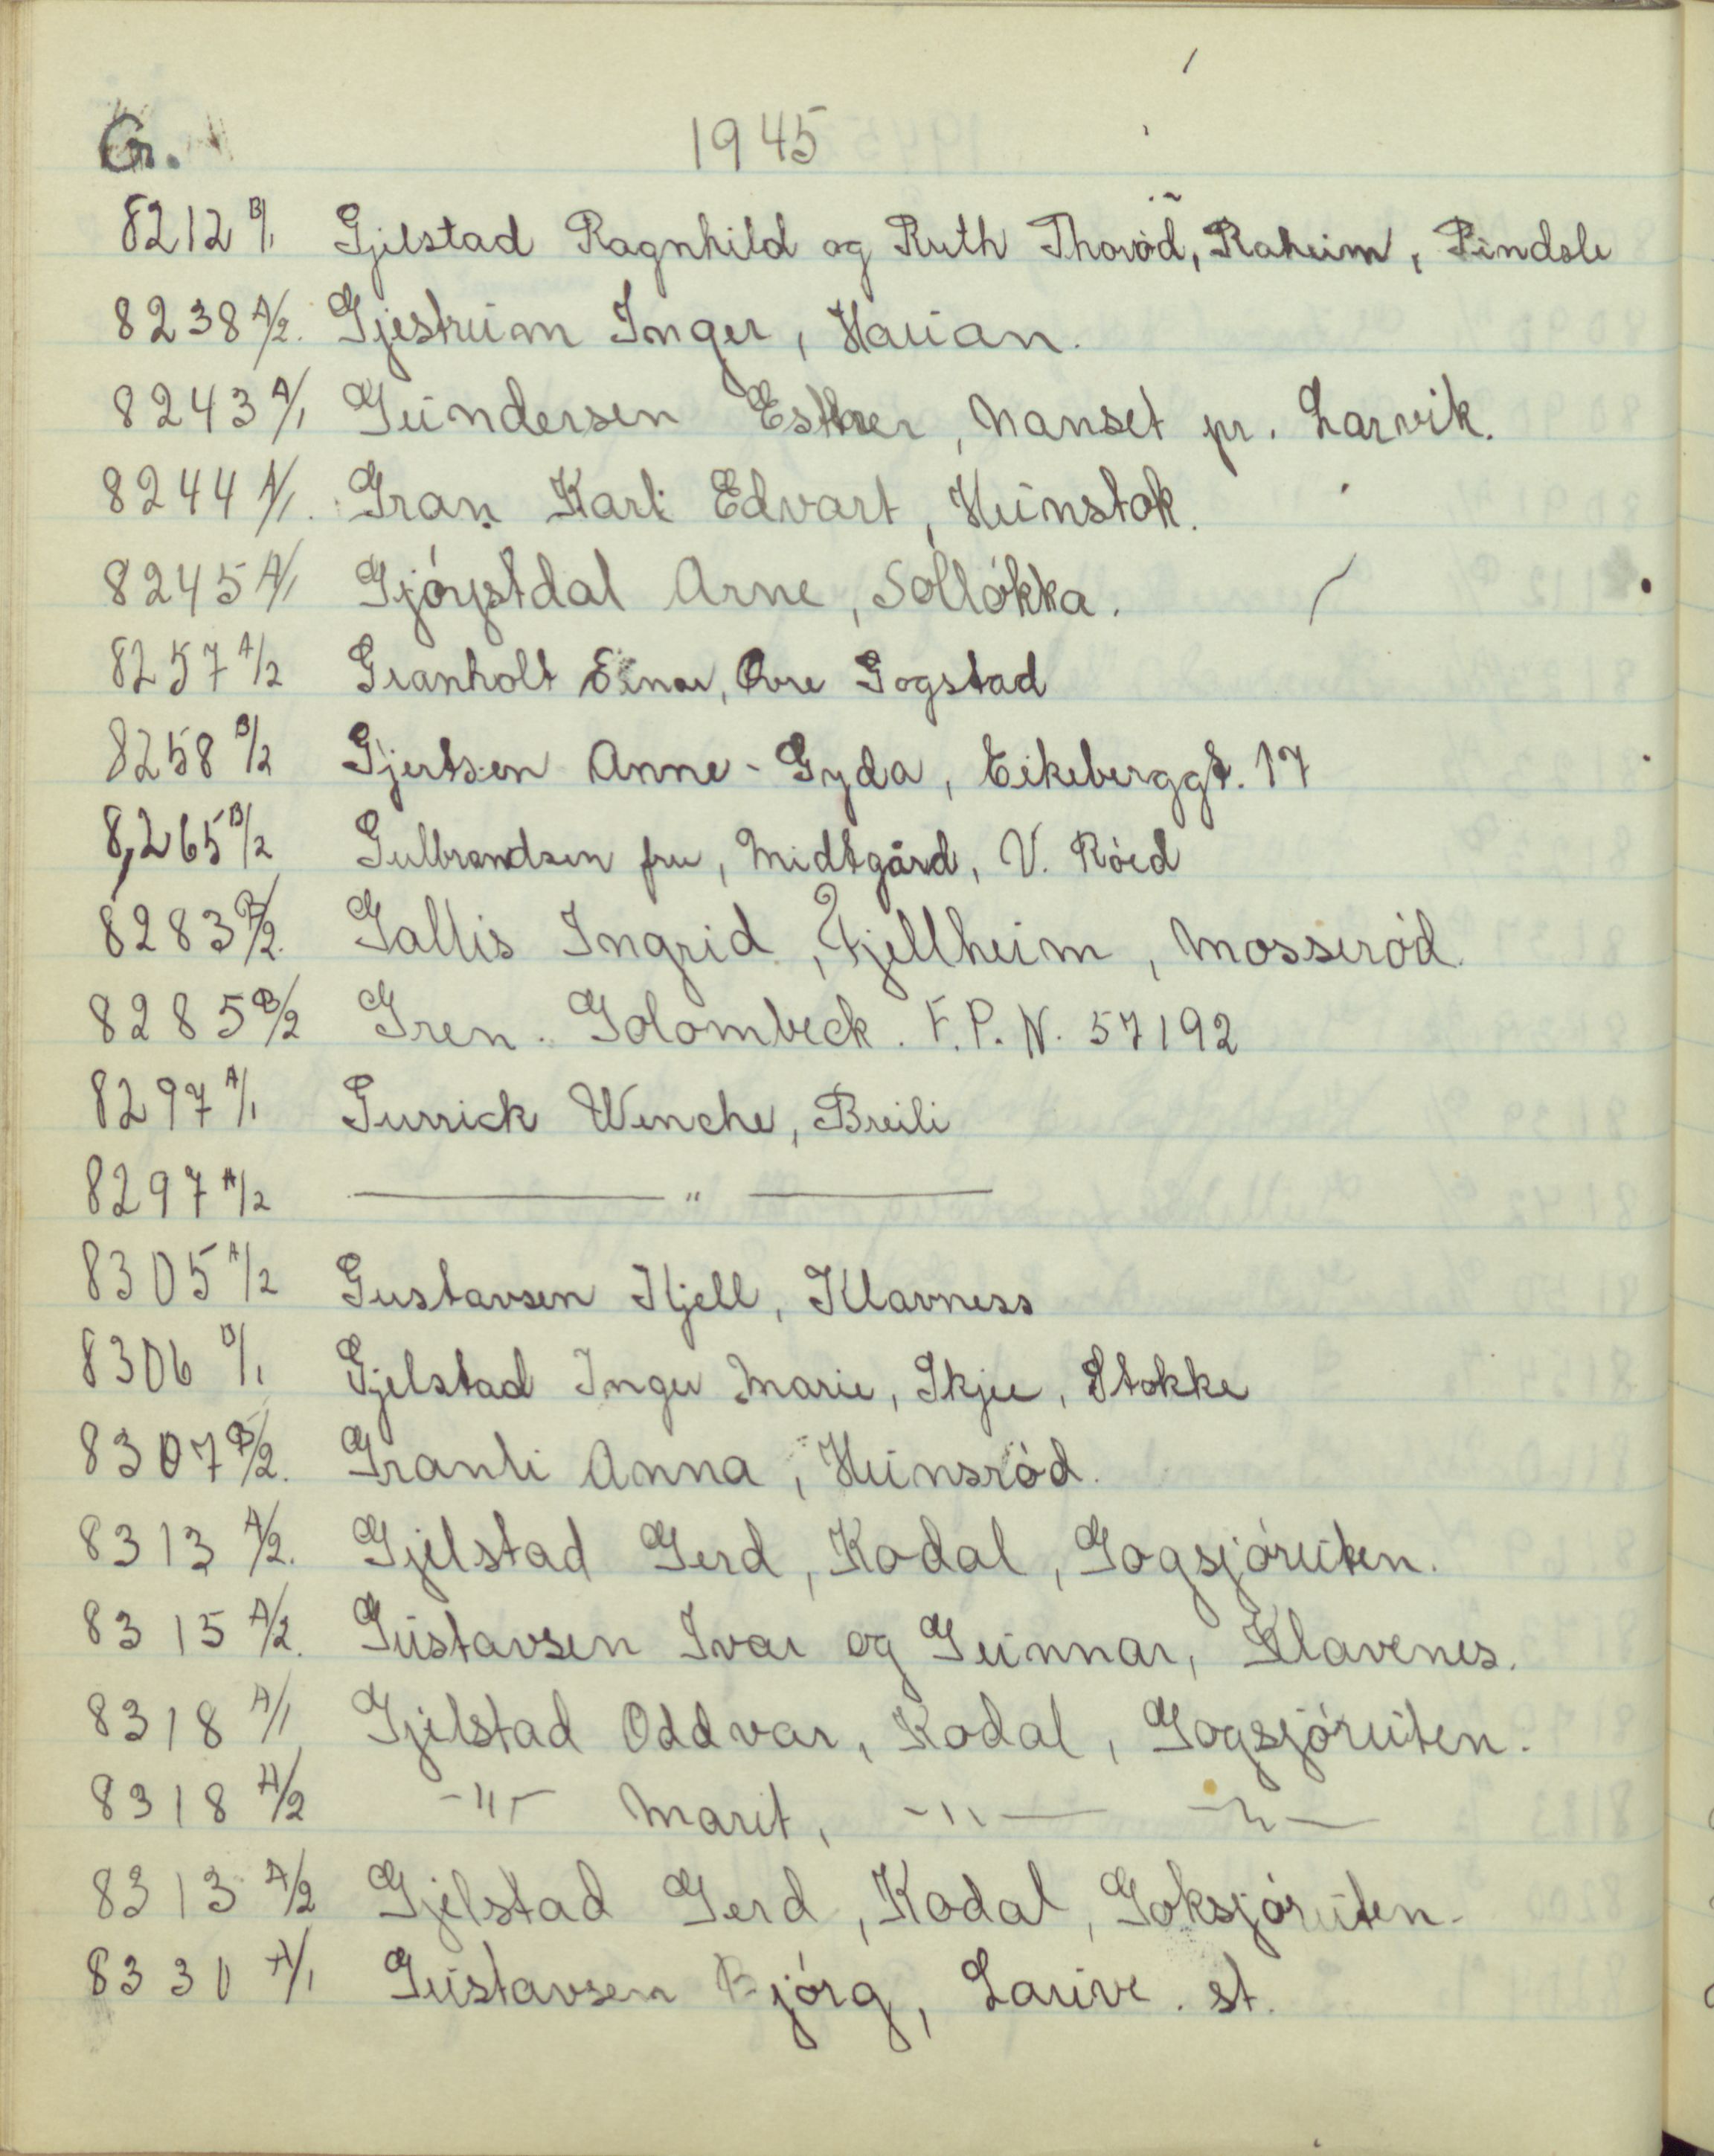 G. 1945
8212 B/1 Gjelstad Ragnhild og Ruth Thoröd, Raheim, Pindsle
8238 A/2. Gjestrum Inger, Havian.
8243 A/1 Gundersen Esther, Nanset pr. Larvik.
8244 A/1. Gran Karl Edvart, Hunstok.
8245 A/1 Gjörystdal Arne, Sollökka.
8257 A/2 Granholt Einar, Ovre Gogstad
8258 B/2 Gjertsen Anne-Gyda, Eikeberggt. 17
8265 B/2 Gulbrandsen fru, Midtgård, V. Röed
8283 B/2. Gallis Ingrid, Fjellheim, Mosseröd.
8285 B/2 Gren. Golombeck. F.P.N. 57192
8297 A/1 Gurrick Wenche, Breili
8297 A/2 — " —
8305 A/2 Gustavsen Kjell, Klavness
8306 B/1 Gjelstad Inger Marie, Skjee, Stokke
8307 B/2. Granli Anna, Hunsröd.
8313 A/2. Gjelstad Gerd, Kodal, Gogsjöruten.
8315 A/2. Gustavsen Ivar og Gunnar, Klavenes.
8318 A/1 Gjelstad Oddvar, Kodal, Gogsjöruten.
8318 A/2 -"- Marit, -"- -"-
8313 A/2 Gjelstad Gerd, Kodal, Goksjöruten.
8330 A/1 Gustavsen Björg, Lauve. st.